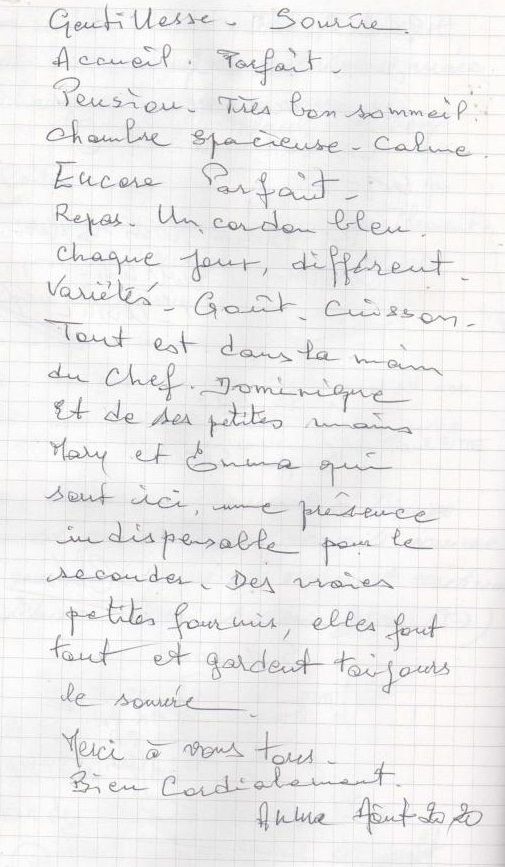 Gentillesse - Sourire.
Accueil. Parfait -
Pension - Très bon sommeil.
Chambre spacieuse - Calme.
Encore Parfait -
Repas - Un cordon bleu.
Chaque jour, différent.
Variétés - Goût - Cuisson -
Tout est dans la main
du Chef. Dominique
Et de ses petites mains
Mary et Emma qui
sont ici, une présence
indispensable pour le
seconder. Des vraies
petites fourmis, elles font
tout et gardent toujours
le sourire.
Merci à vous tous -
Bien Cordialement.
Anna Août 2020